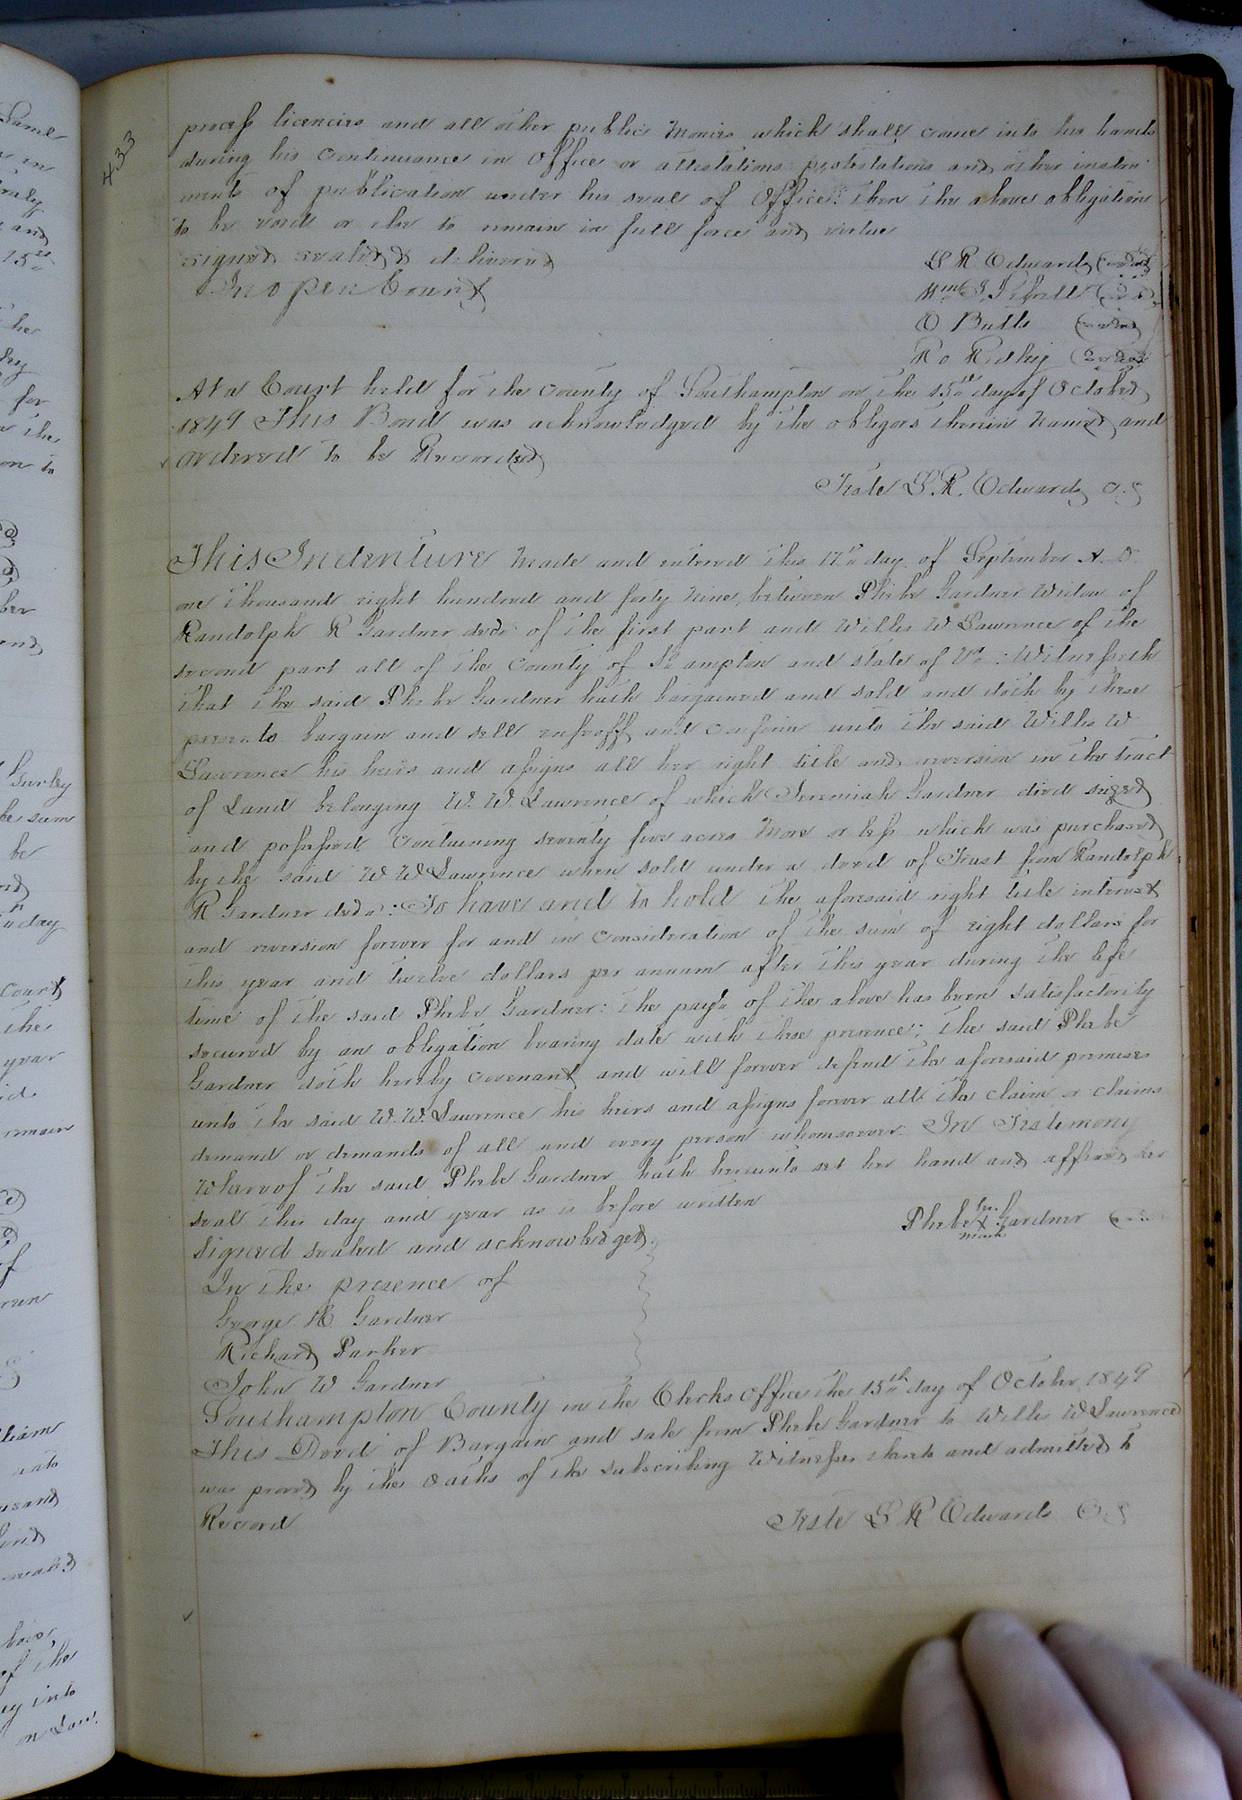 433
process licencies and all other public monies which shall come into his hands
during his continuance in Office or attestations protestations and other instru-
ments of publication under his seal of Office: then the above obligation
to be void or else to remain in full force and virtue
signed sealed & delivered
In open Court
L R Edwards (seal)
(seal)
O Butts (seal)
(seal)
At a Court held for the County of Southampton on the 15th day of October
1849 This Bond was acknowledged by the obligors therein named and
ordered to be Recorded
Teste L. R. Edwards C.S
This Indenture made and entered this 17th day of September A.D.
one thousand eight hundred and forty nine, between Phebe Gardner Widow of
Randolph R Gardner decd. of the first part and Willis W Lawrence of the
second part all of the County of So.ampton and state of Va.: Witnesseth
that the said Phebe Gardner hath bargained and sold and doth by these
presents bargain and sell enfeoff and confirm unto the said Willis W
Lawrence his heirs and assigns all her right title and reversion in the tract
of Land belonging W. W. Lawrence of which Jeremiah Gardner died seized
and possessed Containing seventy five acres more or less which was purchased
by the said W W Lawrence when sold under a deed of Trust from Randolph
R Gardner decd.: To have and to hold the aforesaid right title interest
and reversion forever for and in consideration of the sum of eight dollars for
this year and twelve dollars per annum after this year during the life
time of the said Phebe Gardner: the payt. of the above has been satisfactorily
secured by an obligation bearing date with these presence; the said Phebe
Gardner doth hereby covenant and will forever defend the aforesaid premises
unto the said W. W. Lawrence his heirs and assigns forever all the claim or claims
demand or demands of all and every person whomsoever. In Testimony
Whereof the said Phebe Gardner hath hereunto set her hand and affixed her
seal this day and year as is before written
Phebe her X mark Gardner (seal)
Signed sealed and acknowledged
In the presence of
George H. Gardner
Richard Parker
John W Gardner
Southampton County in the Clerks office the 15th day of October 1849
This Deed of Bargain and sale from Phebe Gardner to Willis W Lawrence
was proved by the oaths of the subscribing Witnesses thereto and admitted to
Record
Teste L R Edwards C.S